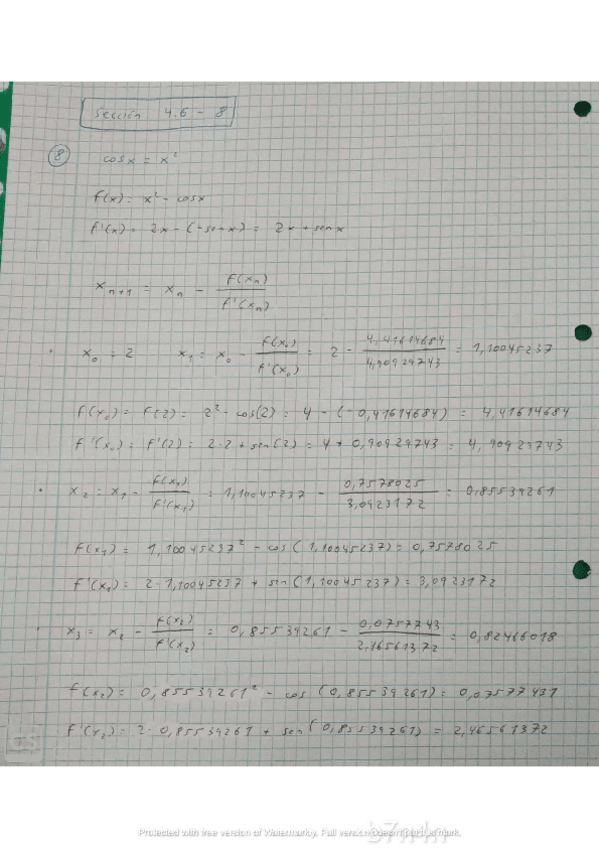 Sección 4.6 - 8
⑧ cosx = x²
f(x) = x² - cosx
f'(x) = 2x - (-senx) = 2x + senx
xₙ₊₁ = xₙ - f(xₙ) / f'(xₙ)
• x₀ = 2 x₁ = x₀ - f(x₀) / f'(x₀) = 2 - 4,41614684 / 4,90929743 = 1,10045237
f(x₀) = f(2) = 2² - cos(2) = 4 - (-0,41614684) = 4,41614684
f'(x₀) = f'(2) = 2·2 + sen(2) = 4 + 0,90929743 = 4,90929743
• x₂ = x₁ - f(x₁) / f'(x₁) = 1,10045237 - 0,7578025 / 3,0923172 = 0,85539261
f(x₁) = 1,10045237² - cos(1,10045237) = 0,7578025
f'(x₁) = 2·1,10045237 + sin(1,10045237) = 3,0923172
• x₃ = x₂ - f(x₂) / f'(x₂) = 0,85539261 - / = 0,82466018
f(x₂) = 0,85539261² - cos(0,85539261) = 0,07577431
f'(x₂) = 2·0,85539261 + sen(0,85539261) = 2,46561372
Protected with free version of Watermarkly. Full version doesn't put this mark.